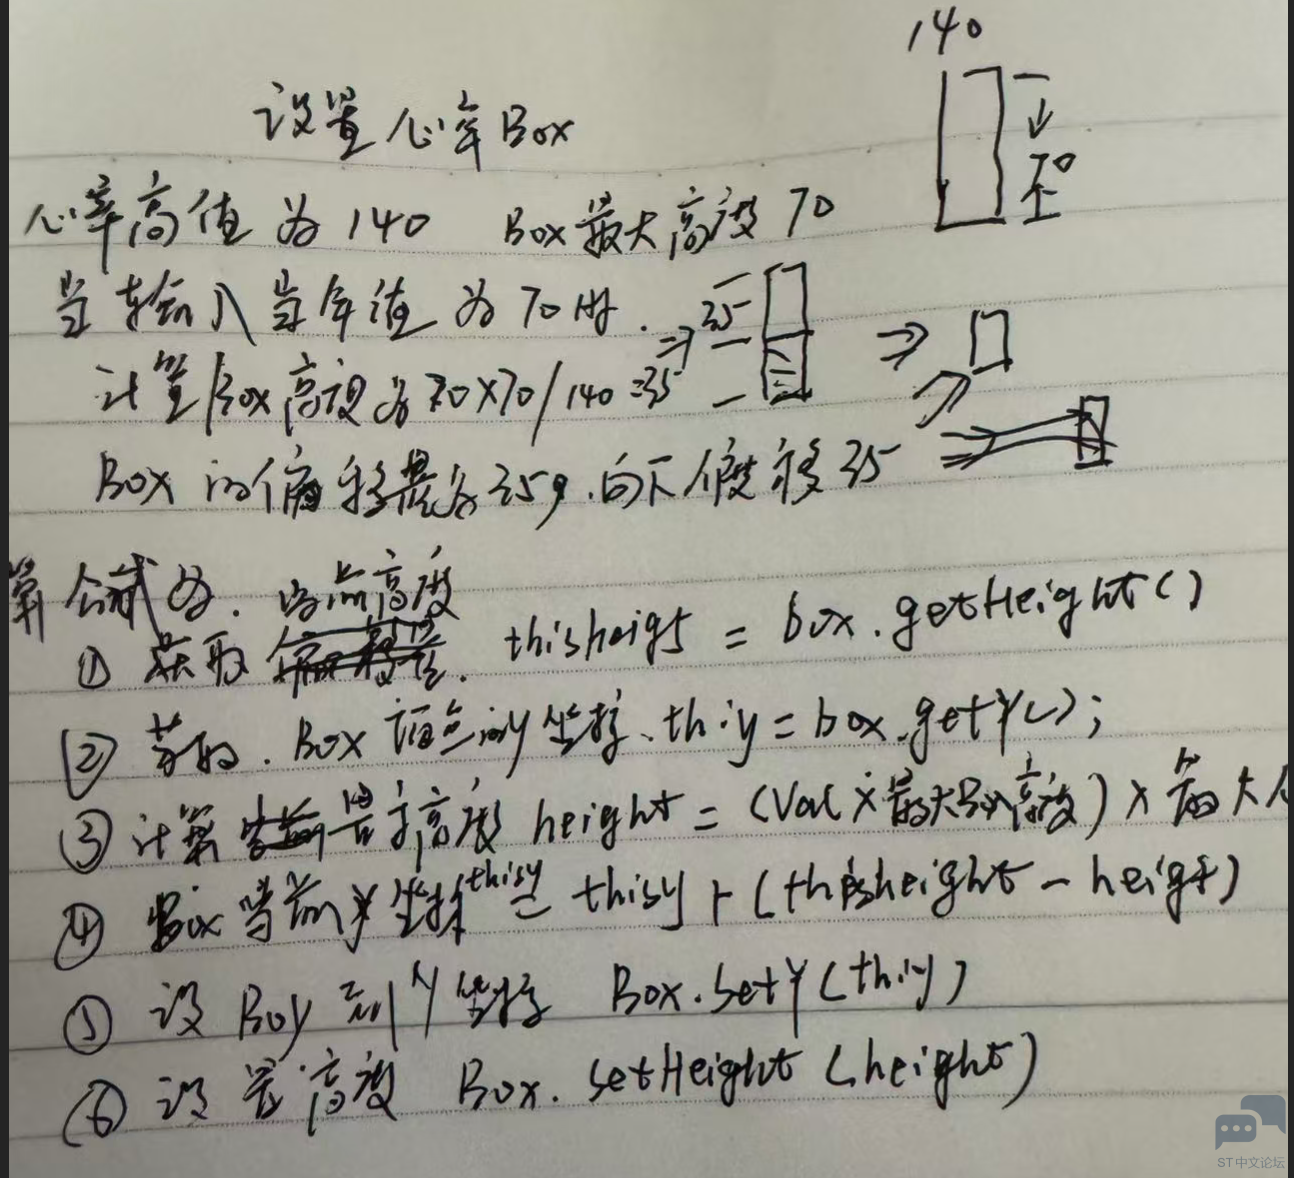 140
设置心率Box
心率高值为140 Box最大高度70
70
当输入当年值为70时.
35
计算Box高设为70×70/140=35
Box的偏移是为35,向下偏移35
算公式为.
当前高度
① 获取 thisheight = box.getHeight()
② 获取.Box 的y坐标.thiy=box.getY();
③ 计算显示高度 height = (Val×最大Box高度)×最大
④ Box当前y坐标thisy = thisy+(thisheight-height)
⑤ 设Boy到Y坐标 Box.setY(thiy)
⑥ 设置高度 Box.setHeight(height)
ST中文论坛